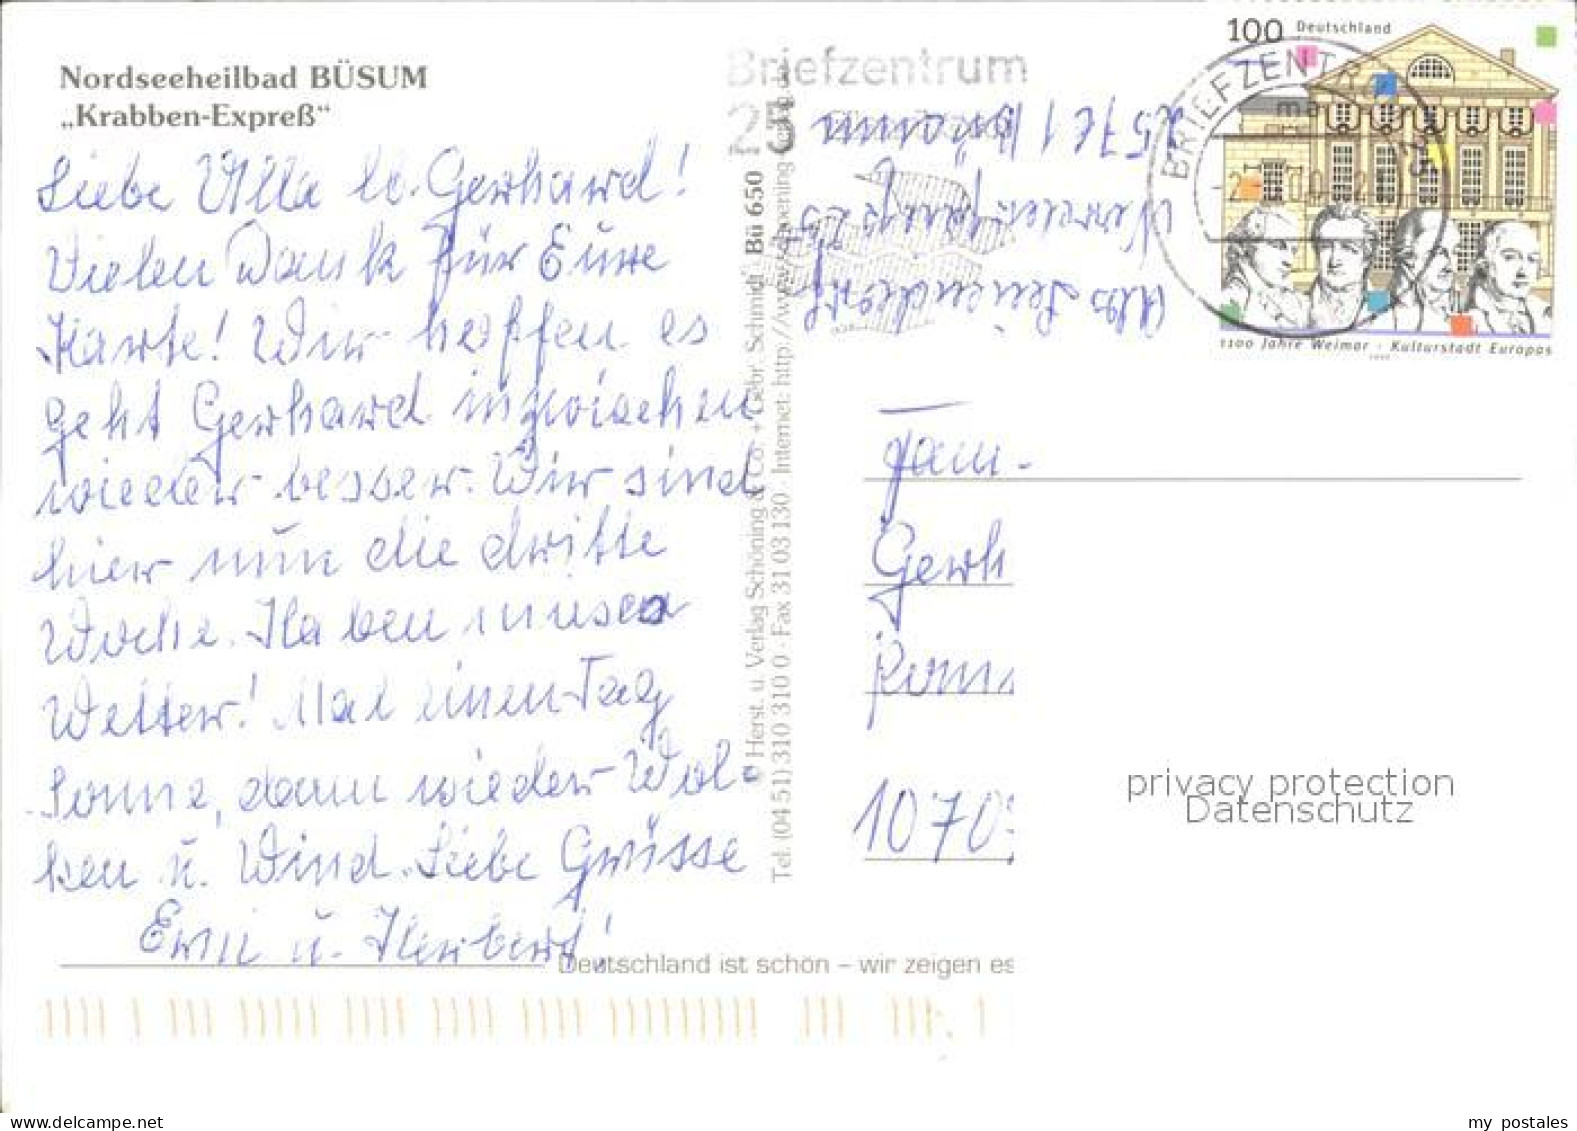 Nordseeheilbad BÜSUM
„Krabben-Expreß“
Liebe Ulla u. Gerhard!
Vielen Dank für Eure
Karte! Wir hoffen es
geht Gerhard inzwischen
wieder besser. Wir sind
hier nun die dritte
Woche. Haben mieses
Wetter! Mal einen Tag
Sonne, dann wieder Wol-
ken u. Wind. Liebe Grüsse
Erni u. Herbert!
Deutschland ist schön – wir zeigen es
© Herst. u. Verlag Schöning & Co. + Gebr. Schmidt Bü 650
Tel. (04 51) 310 310 0 · Fax 31 03 130 · Internet: http://www.schoening-verlag.de
Briefzentrum
25
Abs
25761 Büsum
BRIEFZENTRUM 25
100 Deutschland
1100 Jahre Weimar · Kulturstadt Europas
1999
Fam.
Gerh
1070
privacy protection
Datenschutz
my postales